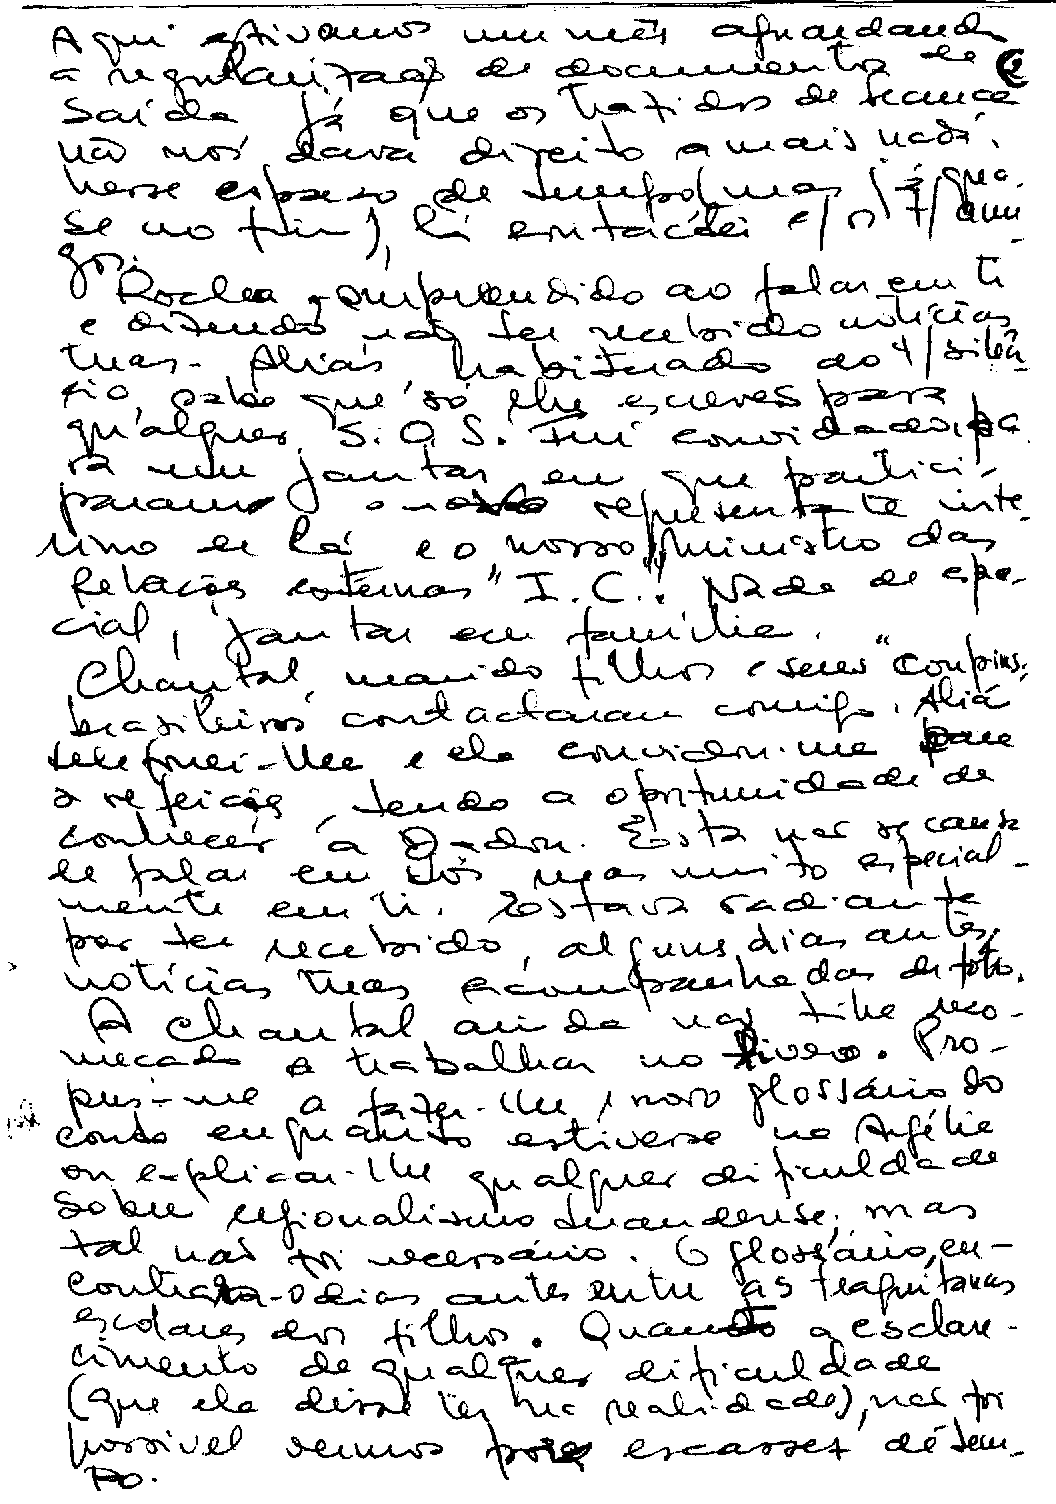 Aqui estivemos um mês aguardando
a regularização de documentos de
saída já que os trazidos de
não nos dava direito a mais nada.
Nesse espaço de tempo, mas (já qua-
se no fim), lá contactei c/ os t/ ami-
gos.
Rocha, surpreendido ao falar em ti
e dizendo não ter recebido notícias
tuas. Aliás habituado ao t/ silên-
cio, sabe que só lhe escreves para
qualquer S.O.S. Fui convidado pa-
ra um jantar em que partici-
param o nosso representante inte-
rino em lá e o nosso "ministro das
Relações externas" I.C.. Nada de espe-
cial, jantar em família.
Chantal, marido filhos e seus "coupins"
brasileiros contactaram comigo. Aliás
telefonei-lhe e ela convidou-me para
a refeição, tendo a oportunidade de
conhecer a Dadou. Esta não se cansa
de falar em vós mas muito especial-
mente em ti. Estava radiante
por ter recebido, alguns dias antes,
notícias tuas acompanhadas de foto.
A Chantal ainda não tinha reco-
meçado a trabalhar no livro. Pro-
pus-me a fazer-lhe 1 novo glossário do
conto enquanto estivesse na Argélia
ou explicar-lhe qualquer dificuldade
sobre regionalismo luandense, mas
tal não foi necessário. O glossário, en-
contrara-o dias antes entre as traquitanas
escolares dos filhos. Quanto a esclare-
cimento de qualquer dificuldade
(que ela disse ter na realidade), não foi
possível vermos por escassez de tem-
po.